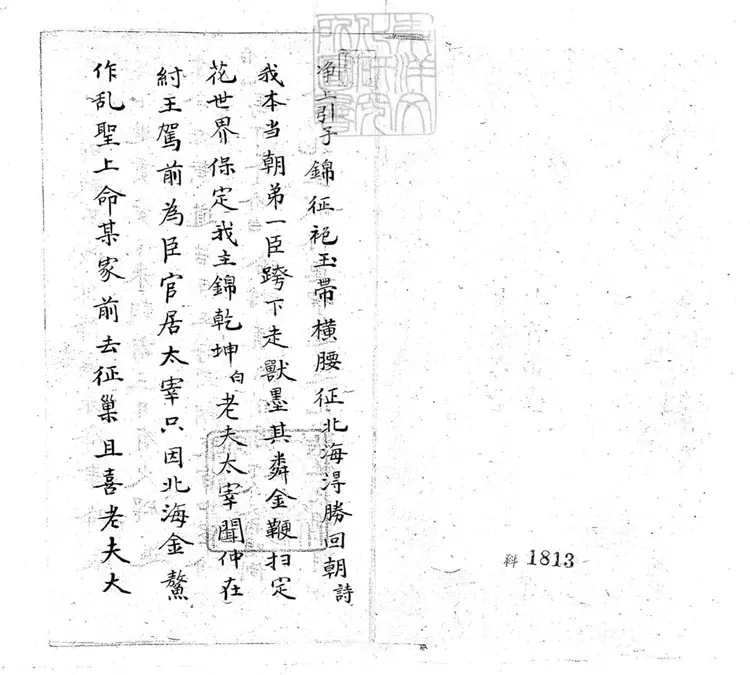 净上引子錦征袍玉帶橫腰征北海淂勝回朝詩
我本当朝弟一臣跨下走獸墨其麟金鞭扫定
花世界保定我主錦乾坤白老夫太宰聞仲在
紂王駕前為臣官居太宰只因北海金鰲
作乱聖上命某家前去征巢且喜老夫大
科 1813